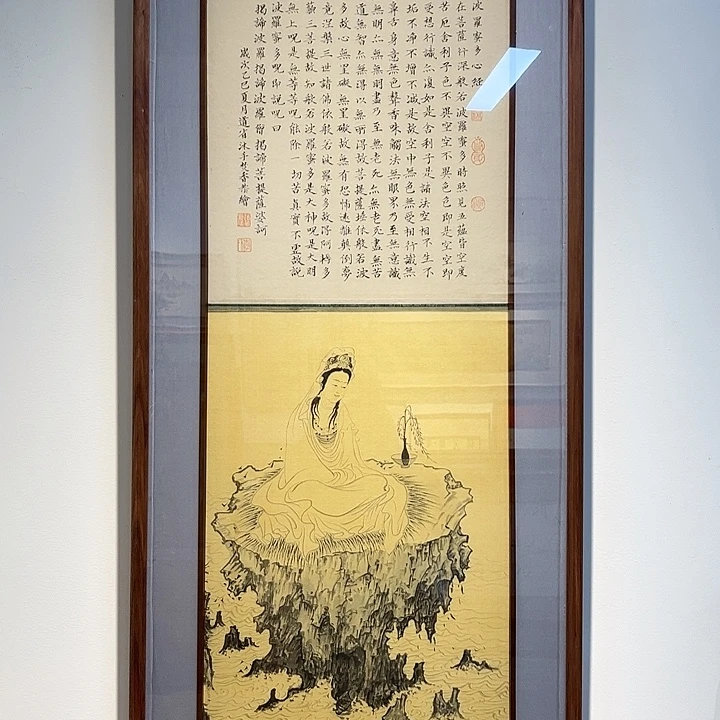 波羅蜜多心經
在菩薩行深般若波羅蜜多時照見五蘊皆空度
苦厄舍利子色不異空空不異色色即是空空即
受想行識亦復如是舍利子是諸法空相不生不
垢不淨不增不減是故空中無色無受想行識無
鼻舌身意無色聲香味觸法無眼界乃至無意識
無明亦無無明盡乃至無老死亦無老死盡無苦
道無智亦無得以無所得故菩提薩埵依般若波
多故心無罣礙無罣礙故無有恐怖遠離顛倒夢
竟涅槃三世諸佛依般若波羅蜜多故得阿耨多
藐三菩提故知般若波羅蜜多是大神呪是大明
無上呪是無等等呪能除一切苦真實不虛故說
波羅蜜多呪即說呪曰
揭諦波羅揭諦波羅僧揭諦菩提薩婆訶
歲次乙巳夏月道省沐手焚香恭繪